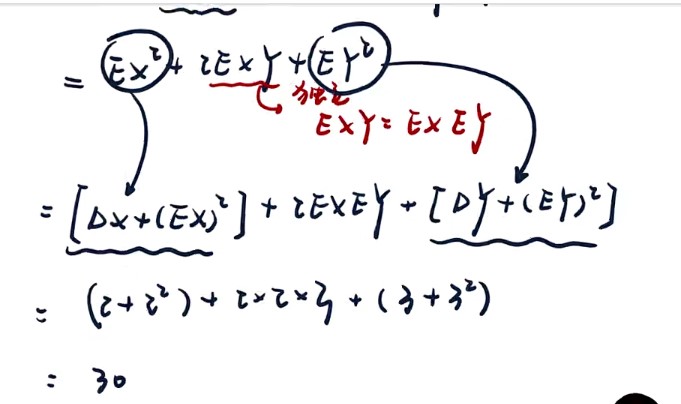 = EX² + 2EXY + EY²
独立
EXY = EX EY
= [DX+(EX)²] + 2EXEY + [DY+(EY)²]
= (2+2²) + 2×2×3 + (3+3²)
= 30